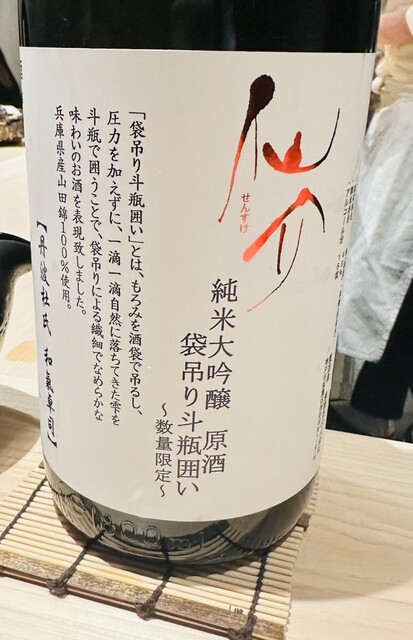 仙介
せんすけ
純米大吟醸 原酒
袋吊り斗瓶囲い
～数量限定～
「袋吊り斗瓶囲い」とは、もろみを酒袋で吊るし、
圧力を加えずに、一滴一滴自然に落ちてきた雫を
斗瓶で囲うことで、袋吊りによる繊細でなめらかな
味わいのお酒を表現致しました。
兵庫県産山田錦100%使用。
【丹波杜氏 和氣卓司】